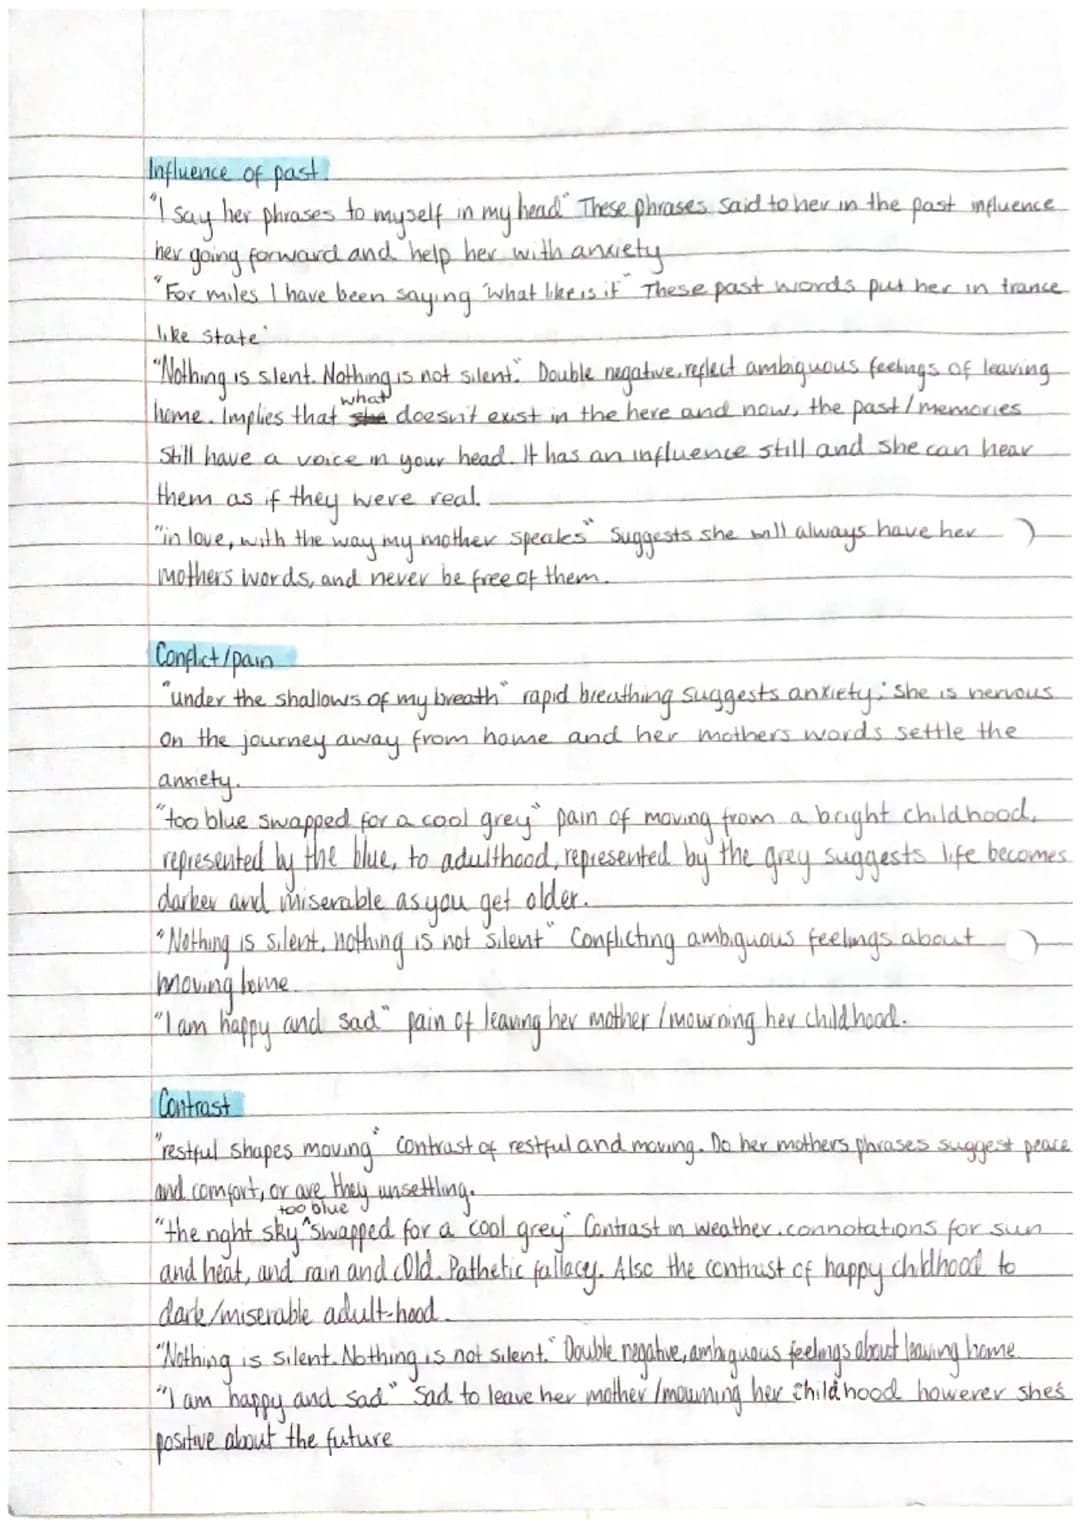 Influence of past.
"I say her phrases to myself in my head" These phrases said to her in the past influence
her going forward and help her with anxiety
"For miles I have been saying 'what like is it'" These past words put her in trance
like state'
"Nothing is silent. Nothing is not silent." Double negative, reflect ambiguous feelings of leaving
home. Implies that what doesn't exist in the here and now, the past/memories
Still have a voice in your head. It has an influence still and she can hear
them as if they were real.
"in love, with the way my mother speaks" Suggests she will always have her
mothers words, and never be free of them.
Conflict/pain
"under the shallows of my breath" rapid breathing suggests anxiety; She is nervous
on the journey away from home and her mothers words settle the
anxiety.
"too blue swapped for a cool grey" pain of moving from a bright childhood,
represented by the blue, to adulthood, represented by the grey suggests life becomes
darker and miserable as you get older.
"Nothing is silent, nothing is not silent" Conflicting ambiguous feelings about
moving home.
"I am happy and sad" pain of leaving her mother/mourning her childhood.
Contrast
"restful shapes moving" Contrast of restful and moving. Do her mothers phrases suggest peace
and comfort, or are they unsettling.
"the night sky too blue swapped for a cool grey" Contrast in weather. connotations for sun
and heat, and rain and cold. Pathetic fallacy. Also the contrast of happy childhood to
dark/miserable adult-hood.
"Nothing is silent. Nothing is not silent." Double negative, ambiguous feelings about leaving home.
"I am happy and sad" Sad to leave her mother/mourning her childhood however she's
positive about the future